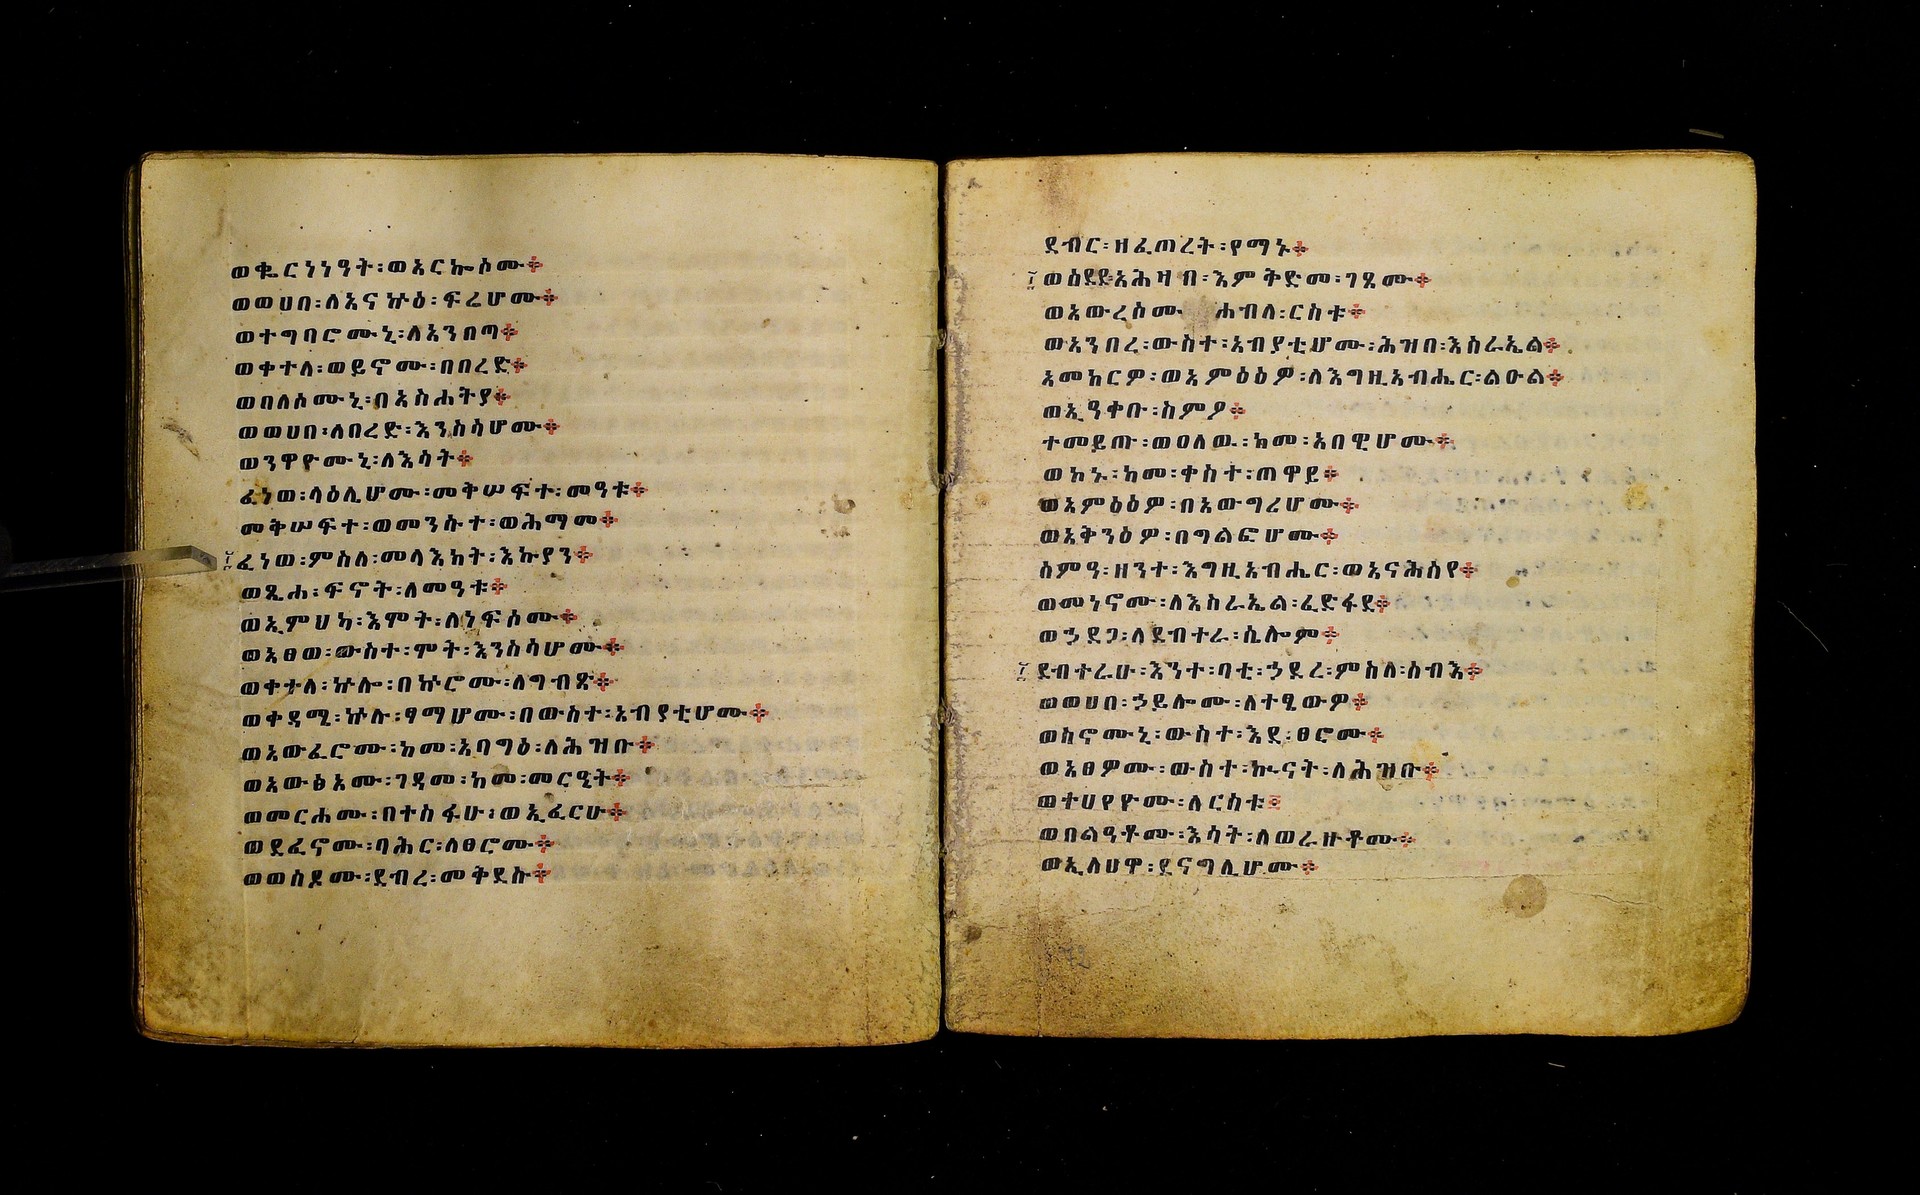 ወቈርነነዓት፡ወአርኰሰሙ፨
ወወሀበ፡ለአናኵዕ፡ፍሬሆሙ፨
ወተግባሮሙኒ፡ለአንበጣ፨
ወቀተለ፡ወይኖሙ፡በበረድ፨
ወበለሶሙኒ፡በአስሐትያ፨
ወወሀበ፡ለበረድ፡እንስሳሆሙ፨
ወንዋዮሙኒ፡ለእሳት፨
ፈነወ፡ላዕሌሆሙ፡መቅሠፍተ፡መዓቱ፨
መቅሠፍተ፡ወመንሱተ፡ወሕማመ፨
ፈነወ፡ምስለ፡መላእክት፡እኩያን፨
ወጼሐ፡ፍኖት፡ለመዓቱ፨
ወኢምህካ፡እሞት፡ለነፍሶሙ፨
ወአፀወ፡ውስተ፡ሞት፡እንስሳሆሙ፨
ወቀተለ፡ኵሎ፡በኵሮሙ፡ለግብጽ፨
ወቀዳሚ፡ኵሉ፡ፃማሆሙ፡በውስተ፡አብያቲሆሙ፨
ወአውፈሮሙ፡ከመ፡አባግዕ፡ለሕዝቡ፨
ወአውፅአሙ፡ገዳመ፡ከመ፡መርዔት፨
ወመርሐሙ፡በተስፋሁ፡ወኢፈርሁ፨
ወደፈኖሙ፡ባሕር፡ለፀሮሙ፨
ወወሰዶሙ፡ደብረ፡መቅደሱ፨
ደብር፡ዘፈጠረት፡የማኑ፨
ወሰደደ፡አሕዛብ፡እምቅድመ፡ገጾሙ፨
ወአውረሶሙ ሐብለ፡ርስቱ፨
ወአንበረ፡ውስተ፡አብያቲሆሙ፡ሕዝበ፡እስራኤል፨
አመከርዎ፡ወአምዕዕዎ፡ለእግዚአብሔር፡ልዑል፨
ወኢዓቀቡ፡ስምዖ፨
ተመይጡ፡ወዐለዉ፡ከመ፡አበዊሆሙ፨
ወኮኑ፡ከመ፡ቀስተ፡ጠዋይ፨
ወአምዕዕዎ፡በአውግሪሆሙ፨
ወአቅንዕዎ፡በግልፎሆሙ፨
ሰምዓ፡ዘንተ፡እግዚአብሔር፡ወአናሕሰየ፨
ወመነኖሙ፡ለእስራኤል፡ፈድፋደ፨
ወኃደጋ፡ለደብተራ፡ሴሎም፨
ደብተራሁ፡እንተ፡ባቲ፡ኃደረ፡ምስለ፡ሰብእ፨
ወወሀበ፡ኃይሎሙ፡ለተፄውዎ፨
ወስኖሙኒ፡ውስተ፡እደ፡ፀሮሙ፨
ወአፀዎሙ፡ውስተ፡ኲናት፡ለሕዝቡ፨
ወተሀየዮሙ፡ለርስቱ፨
ወበልዓቶሙ፡እሳት፡ለወራዙቶሙ፨
ወኢላሀዋ፡ደናግሊሆሙ፨